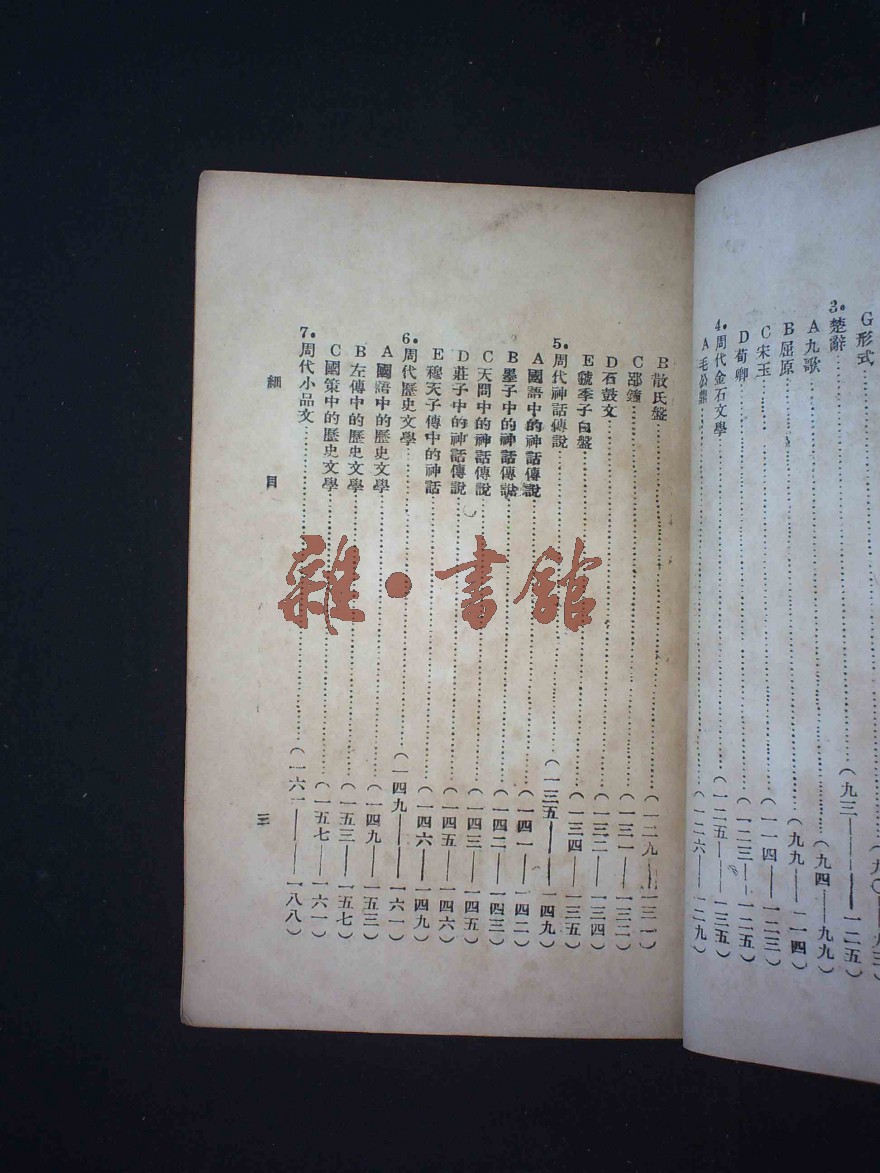 G形式……（九〇——九三）
3.楚辭……（九三——一二五）
A九歌……（九四——九九）
B屈原……（九九——一一四）
C宋玉……（一一四——一二三）
D荀卿……（一二三——一二五）
4.周代金石文學……（一二五——一三五）
A毛公鼎……（一二六——一二九）
B散氏盤……（一二九——一三一）
C邵鐘……（一三一——一三二）
D石鼓文……（一三二——一三四）
E虢季子白盤……（一三四——一三五）
5.周代神話傳說……（一三五——一四九）
A國語中的神話傳說……（一四一——一四二）
B墨子中的神話傳說……（一四二——一四三）
C天問中的神話傳說……（一四三——一四五）
D莊子中的神話傳說……（一四五——一四六）
E穆天子傳中的神話……（一四六——一四九）
6.周代歷史文學……（一四九——一六一）
A國語中的歷史文學……（一四九——一五三）
B左傳中的歷史文學……（一五三——一五七）
C國策中的歷史文學……（一五七——一六一）
7.周代小品文……（一六一——一八八）
細目 三
雜·書館